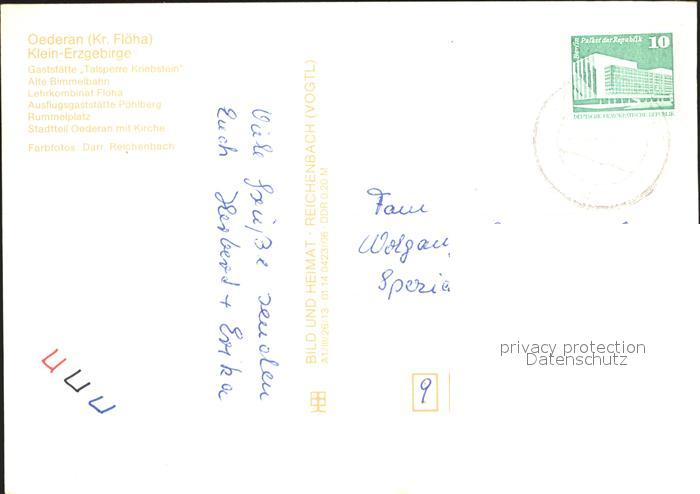 Oederan (Kr. Flöha)
Klein-Erzgebirge
Gaststätte „Talsperre Kriebstein"
Alte Bimmelbahn
Lehrkombinat Flöha
Ausflugsgaststätte Pöhlberg
Rummelplatz
Stadtteil Oederan mit Kirche
Farbfotos Darr, Reichenbach
Viele Grüße senden
Euch Herbert + Erika
BILD UND HEIMAT · REICHENBACH (VOGTL)
A1/III/26/13 · 01 14 0423/96 · DDR 0,20 M
Berlin Palast der Republik 10
DEUTSCHE DEMOKRATISCHE REPUBLIK
Fam
Wolgan
Spezia
9
privacy protection
Datenschutz